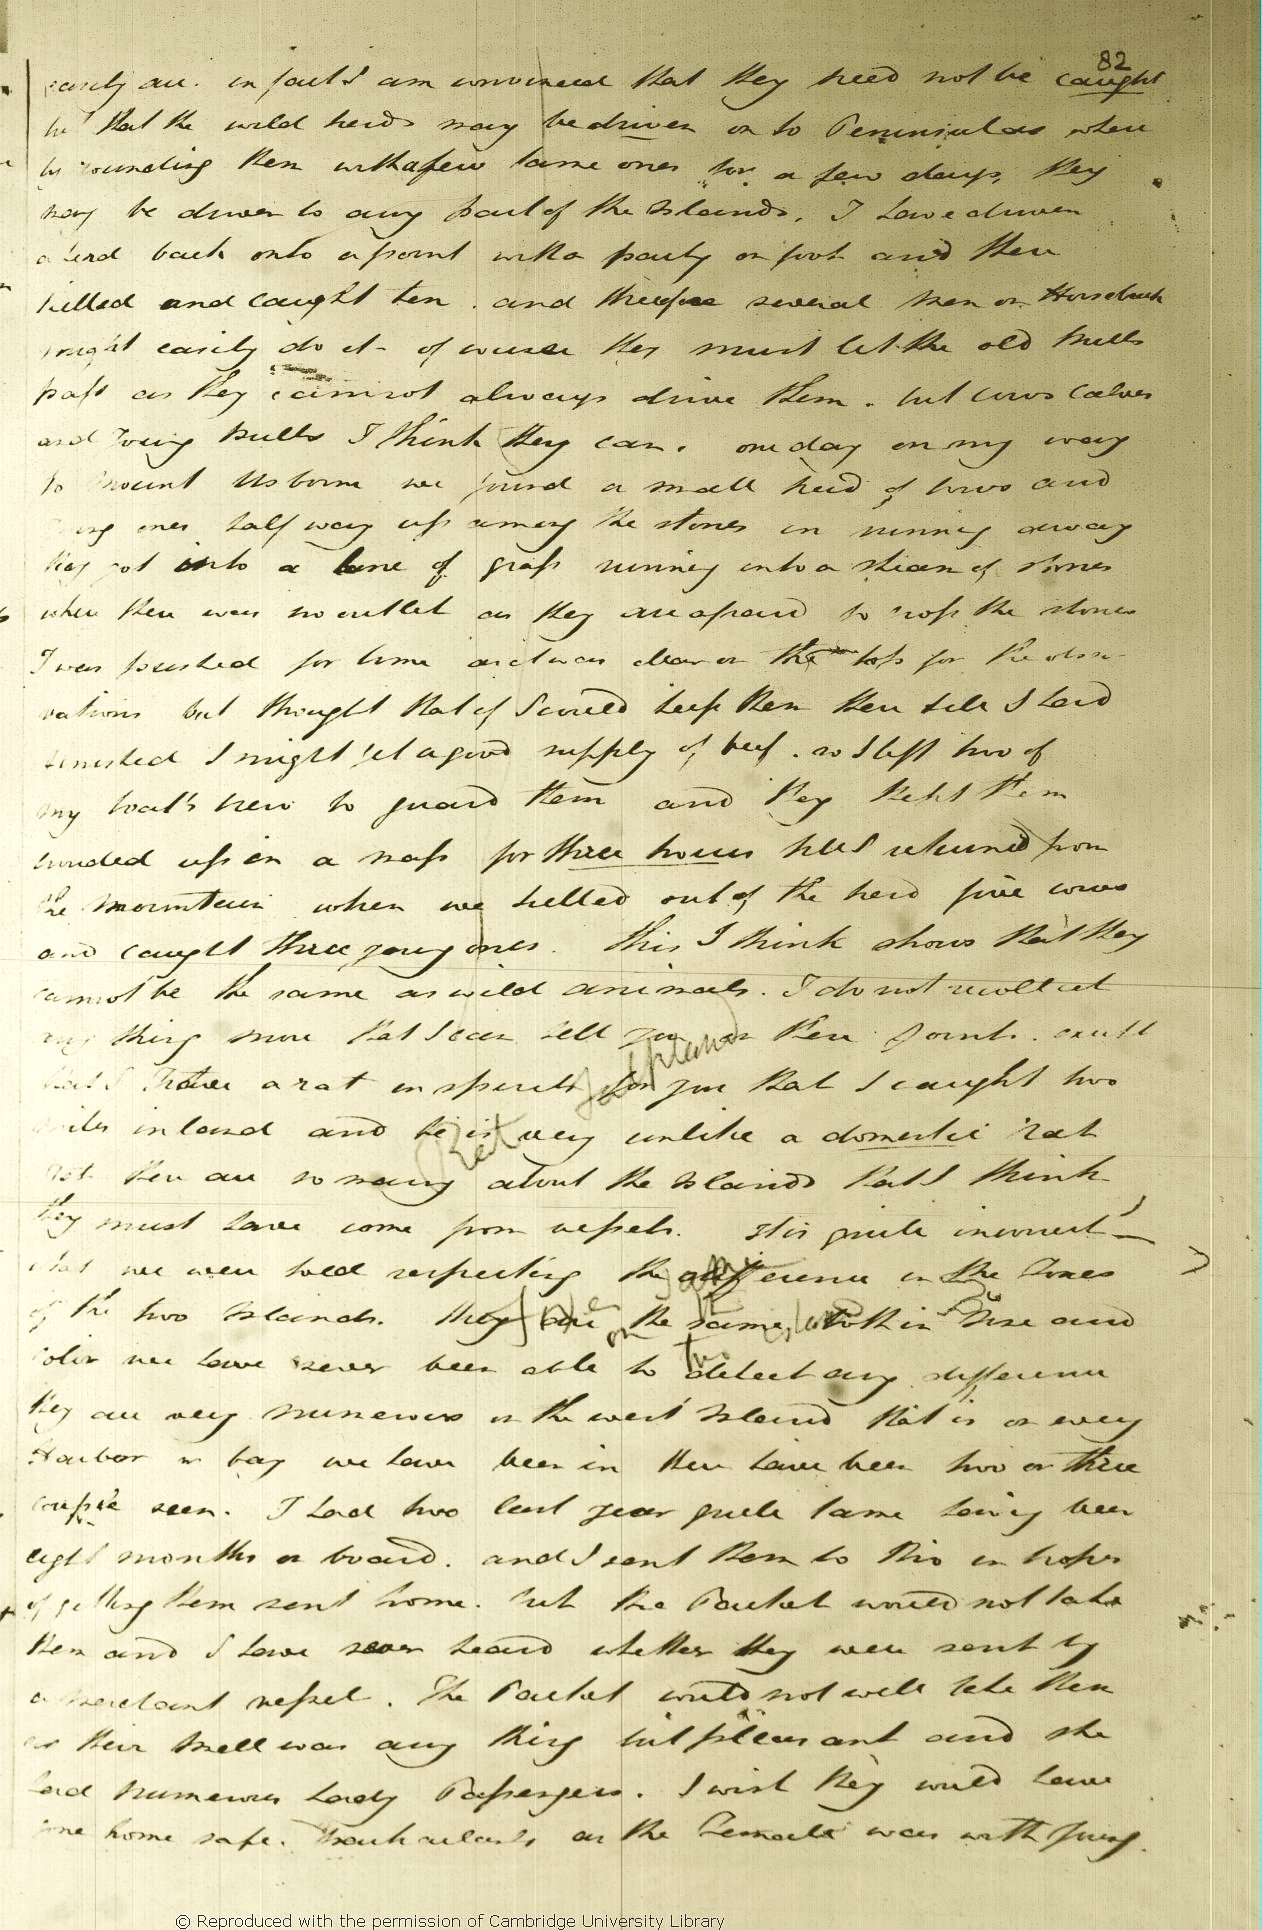 82
easily are. in fact I am convinced that they need not be caught
but that the wild herds may be driven on to Peninsulas when
by rounding them with a few tame ones for a few days, they
may be driven to any part of the Islands. I have driven
a herd back onto a point with a party on foot and then
killed and caught ten. and therefore several men on Horseback
might easily do it - of course they must let the old bulls
pass as they cannot always drive them. but cows calves
and young bulls I think they can. one day on my way
to Mount Usborne we found a small herd of cows and
young ones half way up among the stones in running away
they got into a lane of grass running into a stream of stones
where there was no outlet as they are afraid to cross the stones
I was pushed for time as it was clear on the top for the obser-
vations but thought that if I could keep them there till I had
finished I might get a good supply of beef. so I left two of
my boat's crew to guard them and they kept them
crowded up in a mass for three hours till I returned from
the Mountain when we killed out of the herd five cows
and caught three young ones. This I think shows that they
cannot be the same as wild animals. I do not recollect
any thing more that I can tell you on these points. except
that I have a rat in spirits for you that I caught two
miles inland and he is very unlike a domestic rat
Rat Falkland
but there are so many about the Islands that I think
they must have come from vessels. It is quite incorrect
what we were told respecting the difference in the Foxes
of the two Islands. they are the same, both in Size and
Foxes same
on two islands
color we have never been able to detect any difference
they are very numerous on the west Island that is in every
Harbor or bay we have been in there have been two or three
couple seen. I had two last year quite tame having been
eight months on board. and I sent them to Rio in hopes
of getting them sent home. but the Packet would not take
them and I have never heard whether they were sent by
a merchant vessel. The Packet could not well take them
as their smell was any thing but pleasant and she
had numerous Lady Passengers. I wish they could have
gone home safe. Particularly as the Female was with young.
© Reproduced with the permission of Cambridge University Library